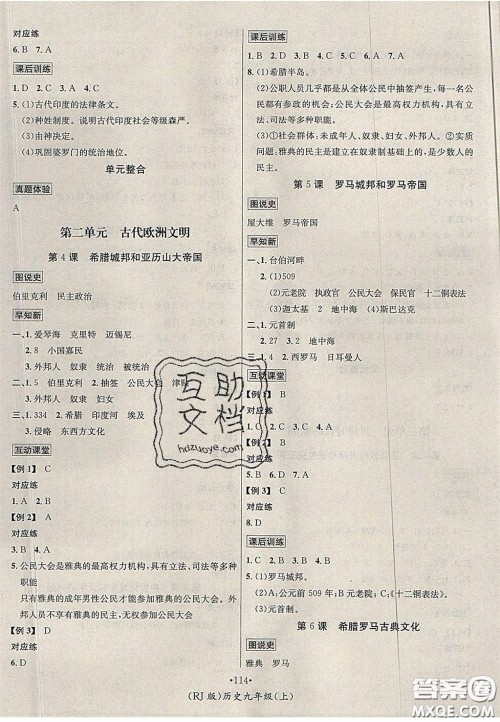 对应练
6. B 7. A
课后训练
1. D 2. C 3. A 4. C
5. (1)古代印度的法律条文。
(2)种姓制度。说明古代印度社会等级森严。
(3)由神决定。
(4)巩固婆罗门的统治地位。
单元整合
真题体验
A
第二单元 古代欧洲文明
第4课 希腊城邦和亚历山大帝国
图说史
伯里克利 民主政治
早知新
一、1. 爱琴海 克里特 迈锡尼
2. 8 小国寡民
3. 外邦人 奴隶 统治 被统治
二、1. 5 伯里克利 2. 抽签 公民大会 津贴
3. 外邦人 奴隶 妇女
三、1. 334 希腊 印度河 埃及
3. 侵略 东西方文化
互动课堂
【例1】 C
对应练
1. A 2. B
【例2】 A
对应练
3. B 4. A
5. 公民大会是雅典的最高权力机构,具有立法、司法等多种
职能
只有雅典的成年男性公民才能参加雅典的公民大会。外
邦人员不享有雅典的民主,无权参加公民大会
【例3】 D
对应练
6. D
课后训练
1. B 2. D 3. D 4. C 5. B 6. B 7. A
8. (1)希腊半岛。
(2)公职人员几乎都是从全体公民中抽签产生,每一名公
民都有参政的机会;公民大会是最高权力机构,具有立
法、司法等多种职能。
(3)①社会群体:未成年人、奴隶、妇女、外邦人。②实质
问题:雅典的民主是建立在奴隶制基础上的,是少数人的
民主。
第5课 罗马城邦和罗马帝国
图说史
屋大维 罗马帝国
早知新
一、1. 台伯河畔
2. (1)509
(2)元老院 执政官 公民大会 保民官 十二铜表法
(3)迦太基 2 地中海 (4)斯巴达克
二、1. 元首制
2. 27 3. 2 地中海
三、1. 4 2. 西罗马 日耳曼人
互动课堂
【例1】 B
对应练
1. C 2. B 3. C 4. A
【例2】 B
对应练
5. B 6. D 7. A
【例3】 C
对应练
8. D
课后训练
1. A 2. B 3. A 4. D
5. (1)罗马城邦。
(2)A:公元前509年;B:元老院;C:《十二铜表法》。
(3)元首制。
第6课 希腊罗马古典文化
图说史
雅典 罗马
·114·
(RJ版)历史九年级(上)
互助
文档
hdzuoye.com
答案圈
MXQE.COM